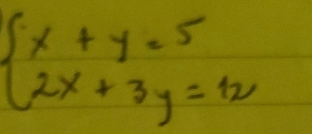 x + y = 5
2x + 3y = 12